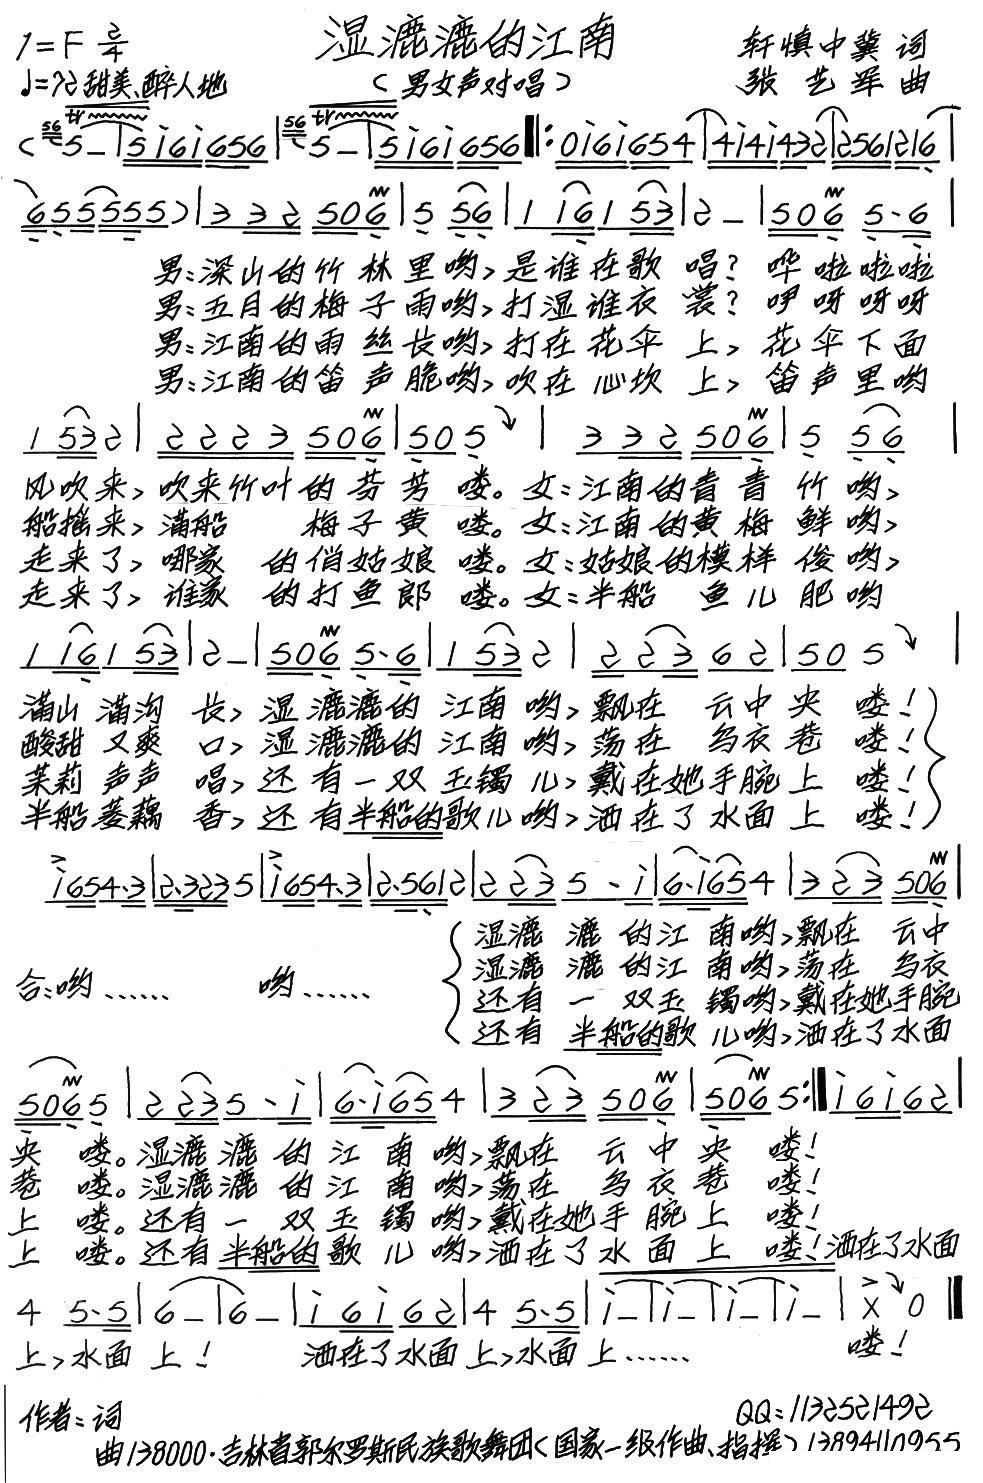 湿漉漉的江南
1=F 2/4
轩慎中冀 词
♩=72 甜美、醉人地
(男女声对唱)
张艺军 曲
男:深山的竹林里哟,是谁在歌唱?哗啦啦啦
男:五月的梅子雨哟,打湿谁衣裳?咿呀呀呀
男:江南的雨丝长哟,打在花伞上,花伞下面
男:江南的笛声脆哟,吹在心坎上,笛声里哟
风吹来,吹来竹叶的芬芳喽。女:江南的青青竹哟,
船摇来,满船梅子黄喽。女:江南的黄梅鲜哟,
走来了,哪家的俏姑娘喽。女:姑娘的模样俊哟,
走来了,谁家的打鱼郎喽。女:半船鱼儿肥哟
满山满沟长,湿漉漉的江南哟,飘在云中央喽!
酸甜又爽口,湿漉漉的江南哟,荡在乌衣巷喽!
茉莉声声唱,还有一双玉镯儿,戴在她手腕上喽!
半船菱藕香,还有半船的歌儿哟,洒在了水面上喽!
湿漉漉的江南哟,飘在云中
湿漉漉的江南哟,荡在乌衣
合:哟…… 哟……
还有一双玉镯哟,戴在她手腕
还有半船的歌儿哟,洒在了水面
央喽。湿漉漉的江南哟,飘在云中央喽!
巷喽。湿漉漉的江南哟,荡在乌衣巷喽!
上喽。还有一双玉镯哟,戴在她手腕上喽!
上喽。还有半船的歌儿哟,洒在了水面上喽!洒在了水面
上,水面上! 洒在了水面上,水面上…… 喽!
作者:词 QQ:1132521492
曲138000·吉林省郭尔罗斯民族歌舞团(国家一级作曲、指挥)13894110955